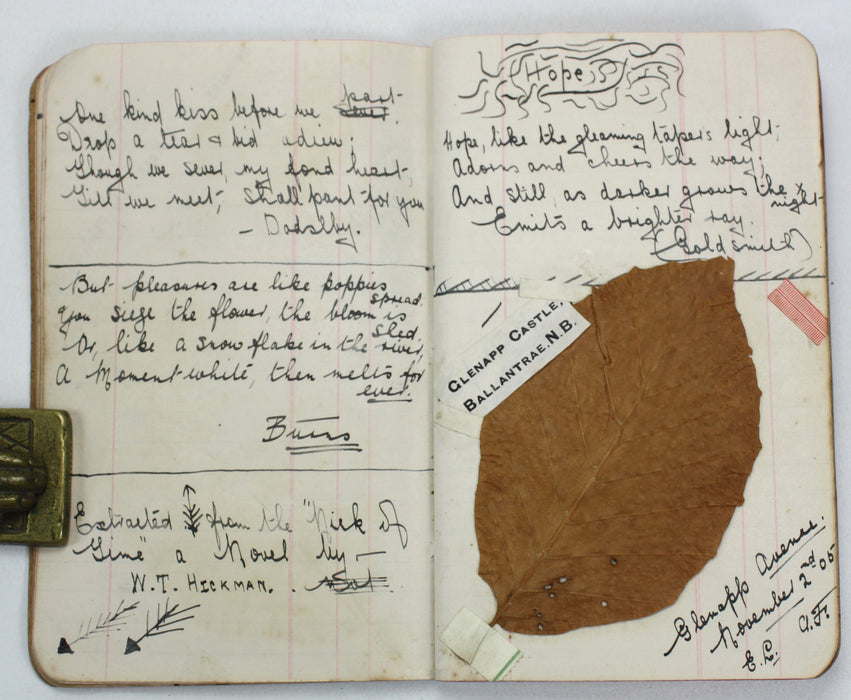 One kind kiss before we part.
Drop a tear & bid adieu;
Though we sever, my fond heart,
Till we meet, shall pant for you
- Dodslby.
But pleasures are like poppies spread.
You siege the flower, the bloom is sled.
Or, like a snow flake in the river,
A Moment white, then melts for ever.
Burns
Extracted from the "Nick of
Time" a Novel by -
W.T. HICKMAN.
Hope
Hope, like the gleaming taper's light;
Adorns and cheers the way;
And still, as darker grows the night
Emits a brighter ray.
(Goldsmith)
GLENAPP CASTLE,
BALLANTRAE. N.B.
Glenapp Avenue.
November 2nd 05
E.L. A.F.